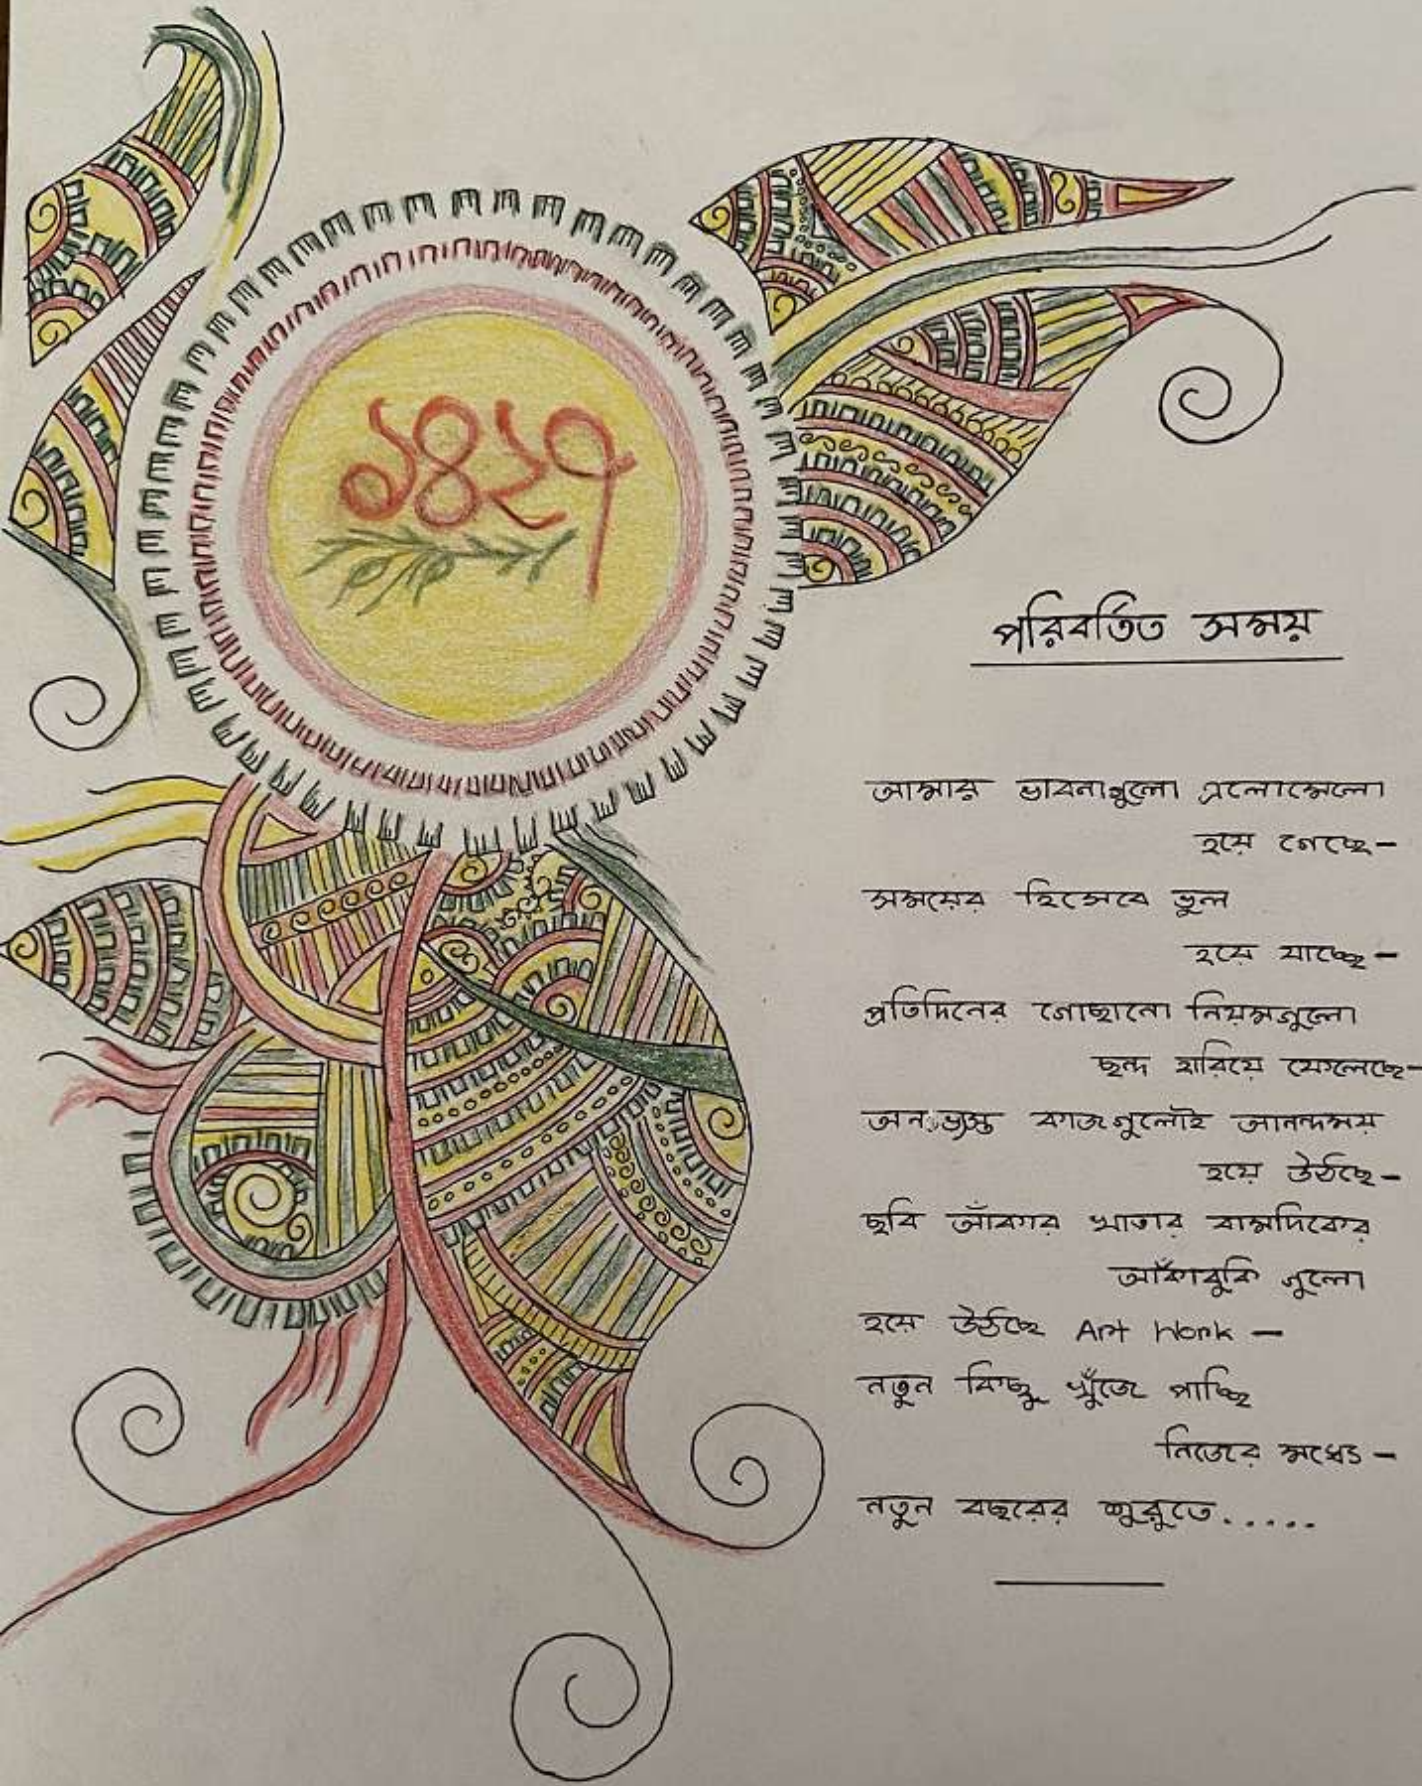 ১৪২৭
পরিবর্তিত সময়
আমার ভাবনাগুলো এলোমেলো
হয়ে গেছে-
সময়ের হিসেবে ভুল
হয়ে যাচ্ছে-
প্রতিদিনের গোছানো নিয়মগুলো
ছন্দ হারিয়ে ফেলেছে-
অনভ্যস্ত কাজগুলোই আনন্দময়
হয়ে উঠছে-
ছবি আঁকার খাতার বামদিকের
আঁকাবুকি গুলো
হয়ে উঠছে Art Work -
নতুন কিছু খুঁজে পাচ্ছি
নিজের মধ্যে -
নতুন বছরের শুরুতে.....